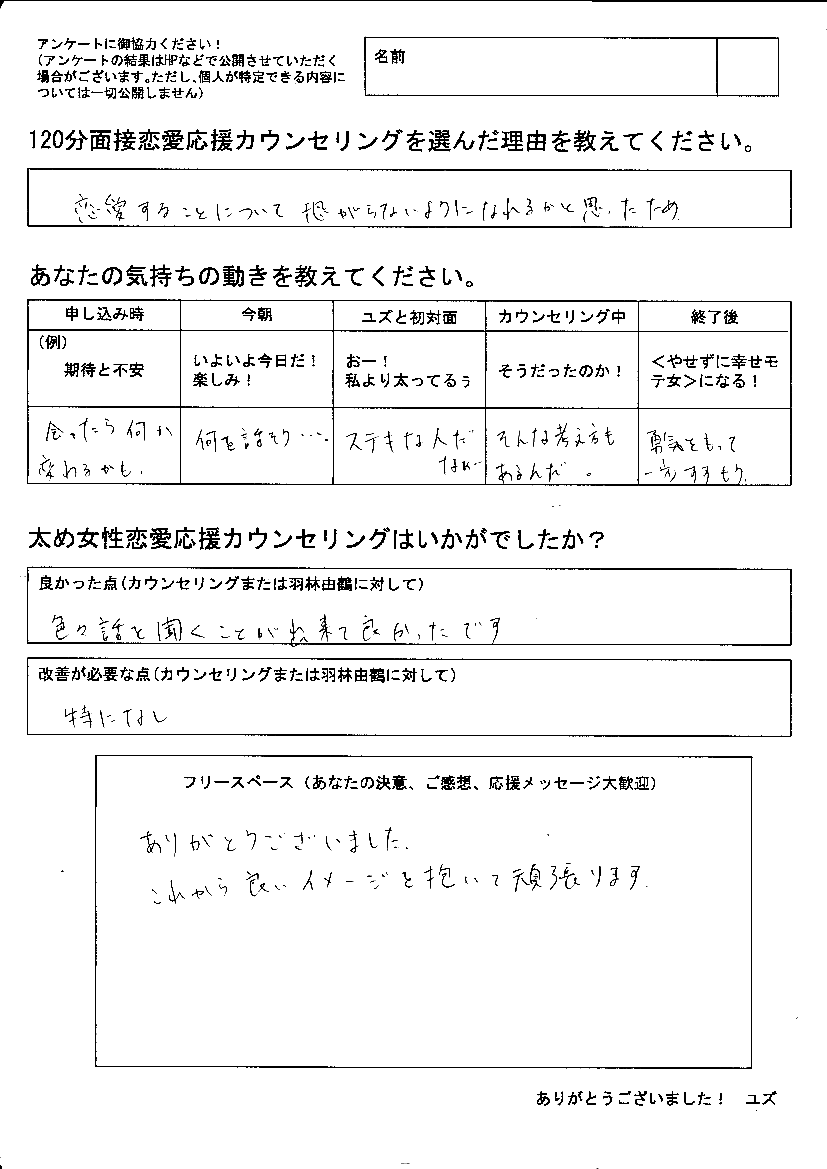 アンケートに御協力ください！
（アンケートの結果はHPなどで公開させていただく
場合がございます。ただし、個人が特定できる内容に
ついては一切公開しません）
名前
120分面接恋愛応援カウンセリングを選んだ理由を教えてください。
恋愛することについて恐がらないようになれるかと思ったため
あなたの気持ちの動きを教えてください。
申し込み時 今朝 ユズと初対面 カウンセリング中 終了後
（例）
期待と不安
いよいよ今日だ！
楽しみ！
おー！
私より太ってるぅ
そうだったのか！
＜やせずに幸せモ
テ女＞になる！
会ったら何か
変わるかも。
何を話そう・・・
ステキな人だ
なぁー
そんな考え方も
あるんだ。
勇気をもって
一歩すすもう。
太め女性恋愛応援カウンセリングはいかがでしたか？
良かった点（カウンセリングまたは羽林由鶴に対して）
色々話を聞くことが出来て良かったです
改善が必要な点（カウンセリングまたは羽林由鶴に対して）
特になし
フリースペース（あなたの決意、ご感想、応援メッセージ大歓迎）
ありがとうございました。
これから良いイメージを抱いて頑張ります。
ありがとうございました！ ユズ